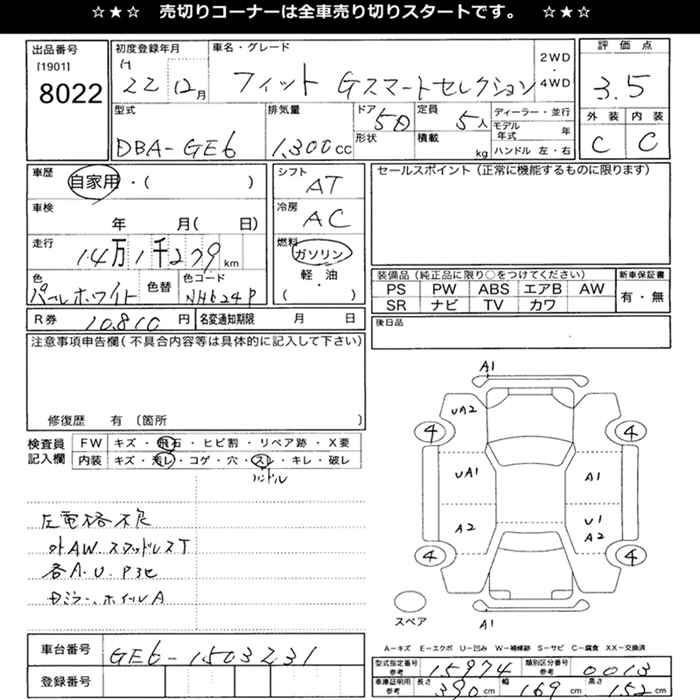 ☆★☆ 売切りコーナーは全車売り切りスタートです。 ☆★☆
出品番号
[1901]
8022
初度登録年月
H 22 12月
車名・グレード
フィット Gスマートセレクション
2WD・4WD
評価点
3.5
外装 内装
C C
型式
DBA-GE6
排気量
1,300cc
ドア 5D
形状
定員 5人
積載 kg
ディーラー・並行
モデル年式 年
ハンドル 左・右
車歴
自家用・( )
シフト
AT
車検
年 月( 日)
冷房
AC
走行
14万1千279km
燃料
ガソリン
軽・油
( )
色
パールホワイト
色替
色コード
NH624P
R券 10,810円
名変通知期限 月 日
セールスポイント(正常に機能するものに限ります)
装備品(純正品に限り○をつけてください)
PS PW ABS エアB AW
SR ナビ TV カワ
新車保証書
有・無
後日品
注意事項申告欄(不具合内容等は具体的に記入して下さい)
修復歴 有 〔箇所 〕
検査員記入欄
FW キズ・飛石・ヒビ割・リペア跡・X要
内装 キズ・汚レ・コゲ・穴・スレ・キレ・破レ
ハンドル
外AW.スタッドレスT
各A.U.P他
ミラー、ホイルA
A1
UA2
4 4
UA1 A1
A2 U1 A2
4 4
スペア
A1
A-キズ E-エクボ U-凹み W-補修跡 S-サビ C-腐食 XX-交換済
車台番号 GE6-1503231
登録番号
型式指定番号 参考 15974
類別区分番号 参考 0013
車庫証明用 参考 長さ 390cm 幅 169cm 高さ 152cm